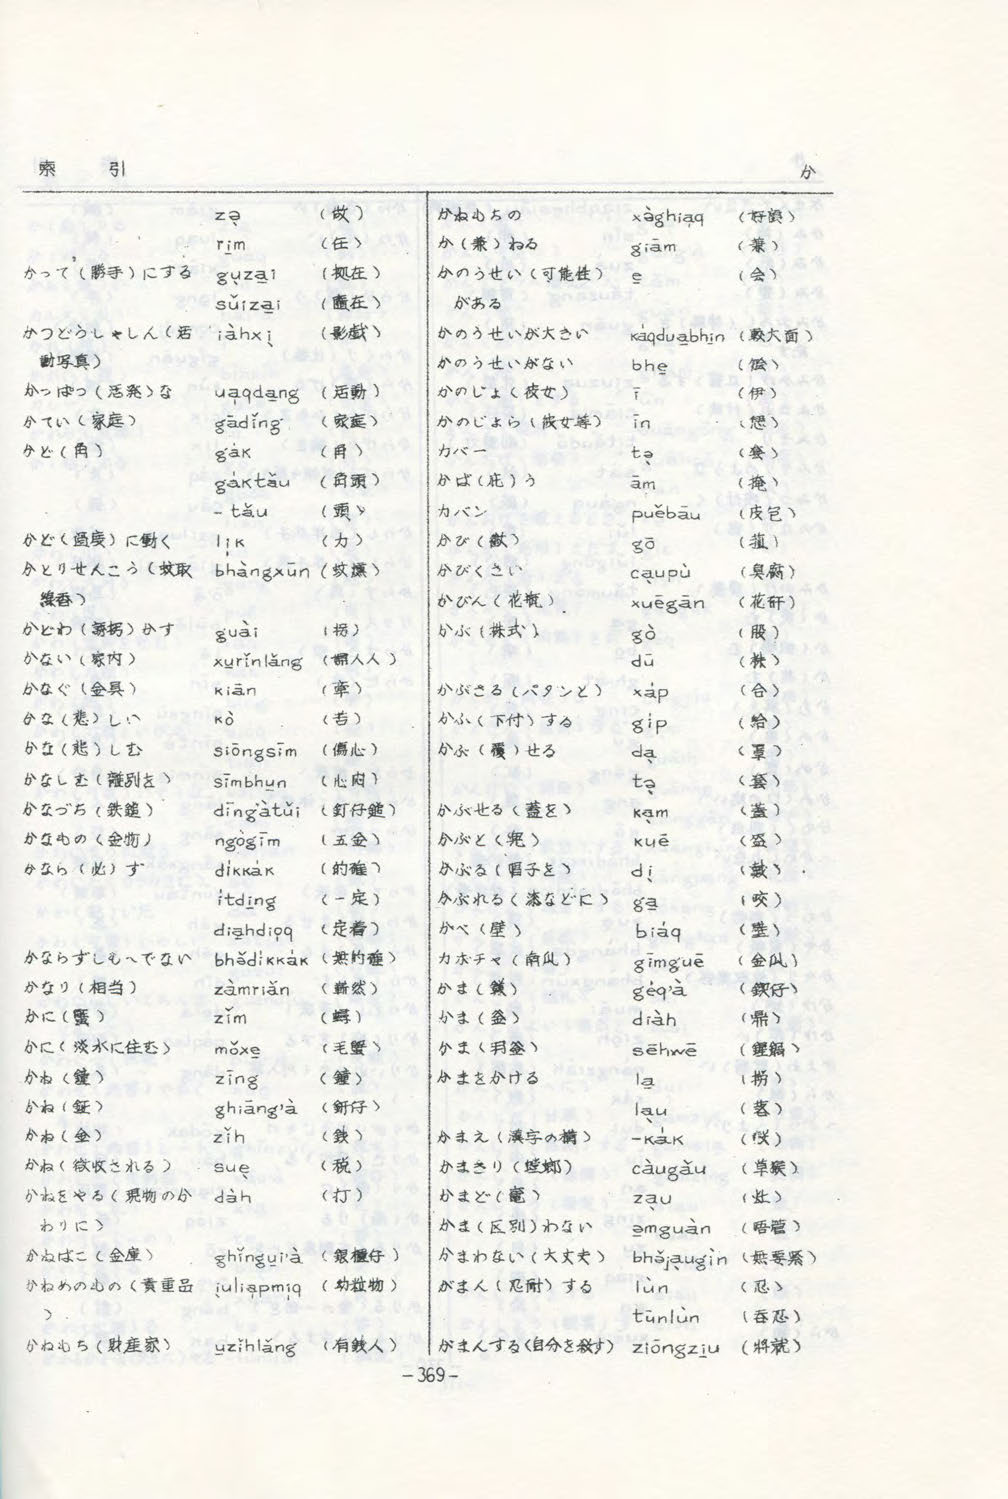 索 引
か
zə̱ （做）
ri̱m （任）
かって（勝手）にする gu̱za̱i （拠在）
sǔiza̱i （隨在）
かつどうしゃしん（活 iàhxi̱ （影戯）
動写真）
かっぱつ（活発）な ua̱qda̱ng （活動）
かてい（家庭） gādǐng （家庭）
かど（角） gȧk （角）
gȧktǎu （角頭）
-tǎu （頭）
かど（過度）に働く li̱k （力）
かとりせんこう（蚊取 bhàngxūn （蚊燻）
線香）
かどわ（誘拐）かす guài （拐）
かない（家内） xu̱rǐnlǎng （婦人人）
かなぐ（金具） kiān
かな（悲）しい kò （苦）
かな（悲）しむ siōngsīm （傷心）
かなしむ（離別を） sīmbhu̱n （心悶）
かなづち（鉄鎚） dīng'àtǔi （釘仔鎚）
かなもの（金物） ngògīm （五金）
かなら（必）ず dikkȧk （的確）
itdi̱ng （一定）
dia̱hdio̱q （定着）
かならずしも〜でない bhǒdikkȧk （無的確）
かなり（相当） zàmriǎn （嶄然）
かに（蟹） zǐm （蟳）
かに（淡水に住む） mǒxe̱ （毛蟹）
かね（鐘） zīng （鐘）
かね（鉦） ghiāng'à
かね（金） zǐh （銭）
かね（徴収される） sue̱ （税）
かねをやる（現物のか dàh （打）
わりに）
かねばこ（金庫） ghǐngu̱i'à （銀櫃仔）
かねめのもの（貴重品 i̱ulia̱pmi̱q （幼粒物）
）
かねもち（財産家） u̱zǐhlǎng （有銭人）
かねもちの xàghia̱q （好額）
か（兼）ねる giām （兼）
かのうせい（可能性） e̱ （会）
がある
かのうせいが大きい kȧqdua̱bhi̱n （較大面）
かのうせいがない bhe̱
かのじょ（彼女） ī （伊）
かのじょら（彼女等） īn
カバー tə̱ （套）
かば（庇）う ām （掩）
カバン puěbāu （皮包）
かび（黴） gō （菰）
かびくさい ca̱upù （臭殕）
かびん（花瓶） xuēgān （花矸）
かぶ（株式） gò （股）
dū （株）
かぶさる（パタンと） xȧp （合）
かふ（下付）する gip （給）
かぶ（覆）せる da̱ （罩）
tə̱ （套）
かぶせる（蓋を） ka̱m （蓋）
かぶと（兜） kuē （盔）
かぶる（帽子を） di̱ （戴）
かぶれる（漆などに） ga̱ （咬）
かべ（壁） biȧq （壁）
カボチャ（南瓜） gīmguē （金瓜）
かま（鎌） géq'à （鍥仔）
かま（釜） diàh （鼎）
かま（羽釜） sēhwē
かまをかける la̱
la̱u
かまえ（漢字の構） -kȧk
かまきり（螳螂） càugǎu （草猴）
かまど（竈） za̱u （灶）
かま（区別）わない ə̱mguàn （唔管）
かまわない（大丈夫） bhǒja̱ugìn （無要緊）
がまん（忍耐）する lùn （忍）
tūnlùn （吞忍）
がまんする（自分を殺す） ziōngzi̱u （將就）
-369-